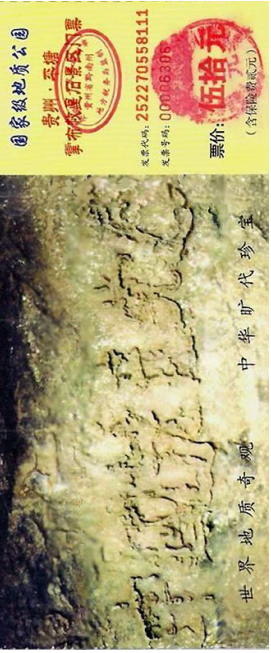 国家级地质公园
贵州·平塘
掌布
景区门票
发票代码: 252270558111
发票号码: 00006306
票价: 伍拾元
(含保险费贰元)
中國共產党亡
世界地质奇观 中华旷代珍宝